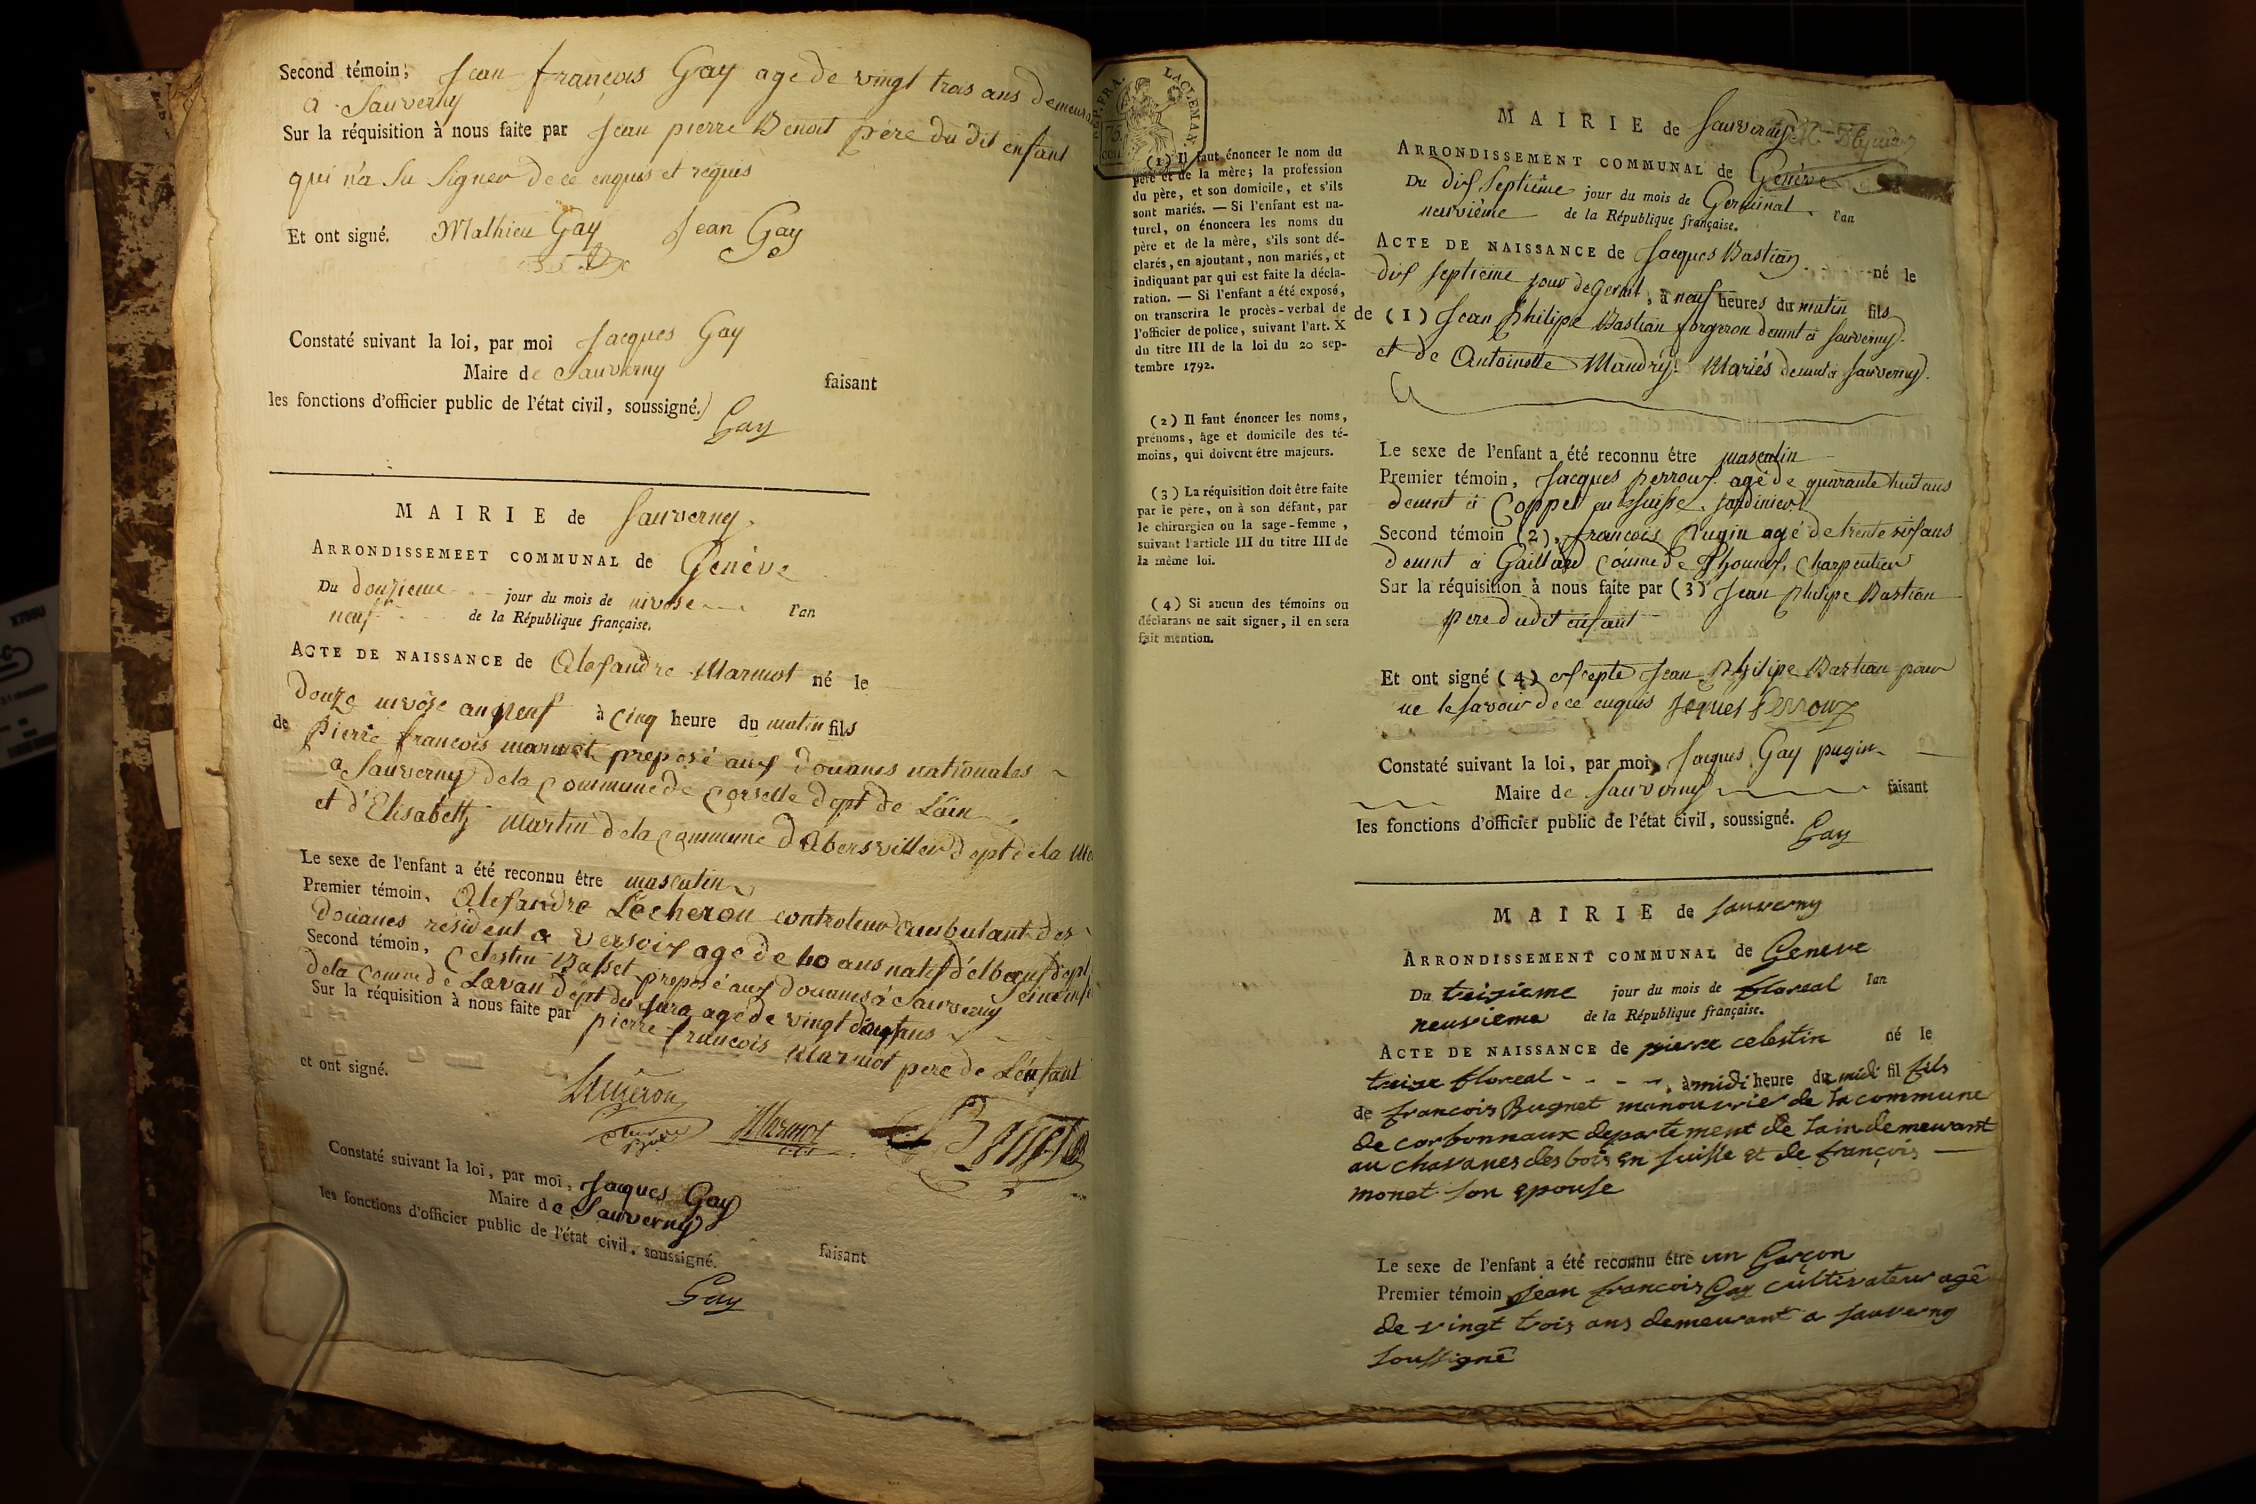 Second témoin, Jean françois Gay age de vingt trois ans
a Sauverny
Sur la réquisition à nous faite par Jean pierre Benoit père du dit enfant
qui n'a su signer de ce enquis et requis
Et ont signé. Mathieu Gay Jean Gay
Constaté suivant la loi, par moi Jacques Gay
Maire de Sauverny faisant
les fonctions d'officier public de l'état civil, soussigné.
Gay
MAIRIE de Sauverny.
ARRONDISSEMEET COMMUNAL de Genève
Du douzieme jour du mois de nivose l'an
neuf de la République française.
ACTE DE NAISSANCE de Alexandre Marmot né le
douze nivôse an neuf à cinq heure du matin fils
de Pierre françois marmot preposé aux douanes nationales
a Sauverny de la Commune de dept de L'ain
et d'Elisabeth Martin de la Commune dept de la
Le sexe de l'enfant a été reconnu être masculin
Premier témoin, Alexandre Lécheron controleur ambulant des
douanes résident a Versoix age de 40 ans natif d'elbeuf dept
Second témoin, Celestin Basset preposé aux douanes à Sauverny
de la Comne de Lavan dept du Jura age de vingt ans
Sur la réquisition à nous faite par pierre françois Marmot pere de L'enfant
et ont signé.
Lécheron
Marmot Basset
Constaté suivant la loi, par moi, Jacques Gay
Maire de Sauverny faisant
les fonctions d'officier public de l'état civil, soussigné.
Gay
REP. FRA.
75
cen
(1) Il faut énoncer le nom du
père et de la mère; la profession
du père, et son domicile, et s'ils
sont mariés. — Si l'enfant est na-
turel, on énoncera les noms du
père et de la mère, s'ils sont dé-
clarés, en ajoutant, non mariés, et
indiquant par qui est faite la décla-
ration. — Si l'enfant a été exposé,
on transcrira le procès-verbal de
l'officier de police, suivant l'art. X
du titre III de la loi du 20 sep-
tembre 1792.
(2) Il faut énoncer les noms,
prénoms, âge et domicile des té-
moins, qui doivent être majeurs.
(3) La réquisition doit être faite
par le père, ou à son défaut, par
le chirurgien ou la sage-femme,
suivant l'article III du titre III de
la même loi.
(4) Si aucun des témoins ou
déclarans ne sait signer, il en sera
fait mention.
MAIRIE de Sauverny
ARRONDISSEMENT COMMUNAL de Genève
Du dix septième jour du mois de Germinal l'an
neuvième de la République française.
ACTE DE NAISSANCE de Jacques Bastian né le
dix septieme jour de Germl, à neuf heures du matin fils
de (1) Jean Philipe Bastian forgeron demnt à Sauverny.
et de Antoinette Mandry. Mariés demnt à Sauverny.
Le sexe de l'enfant a été reconnu être masculin
Premier témoin, Jacques perroux agé de quarante huit ans
demnt à Coppet en Suisse, Jardinier
Second témoin (2), françois Pugin agé de trente six ans
demnt à Gaillard Comne de Thonnex, Charpentier
Sur la réquisition à nous faite par (3) Jean Philipe Bastian
pere dudit enfant
Et ont signé (4) excepté Jean Philipe Bastian pour
ne le savoir de ce enquis Jaques Perroux
Constaté suivant la loi, par moi, Jacques Gay pugin
Maire de Sauverny faisant
les fonctions d'officier public de l'état civil, soussigné.
Gay
MAIRIE de Sauverny
ARRONDISSEMENT COMMUNAL de Geneve
Du treizieme jour du mois de floreal l'an
neuvieme de la République française.
ACTE DE NAISSANCE de pierre celestin né le
treize floreal, à midi heure du midi fil fils
de francois Bugnet manouvrier de la commune
de corbonnaux departement de lain demeurant
au chavanes des bois en suisse et de françois
monet son epouse
Le sexe de l'enfant a été reconnu être un Garçon
Premier témoin Jean francois Gay cultivateur agé
de vingt trois ans demeurant a sauverny
soussigné